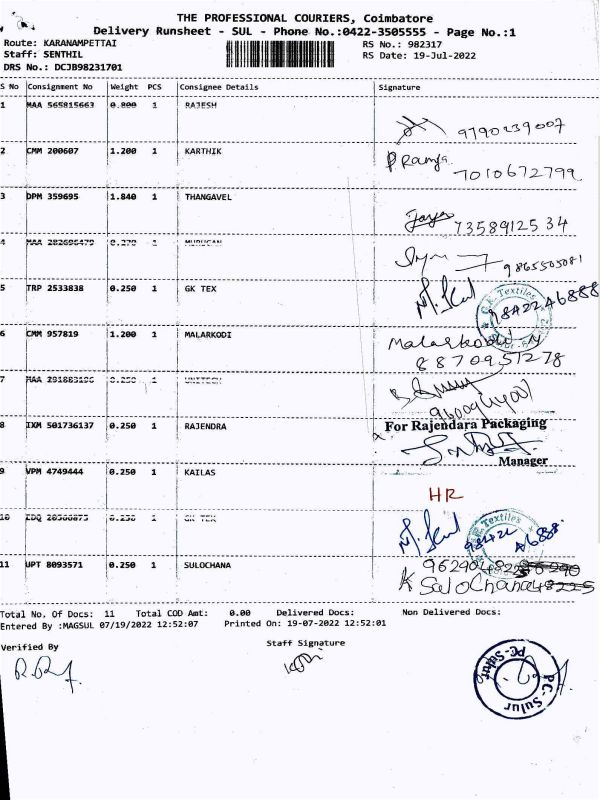 THE PROFESSIONAL COURIERS, Coimbatore
Delivery Runsheet - SUL - Phone No.:0422-3505555 - Page No.:1
Route: KARANAMPETTAI RS No.: 982317
Staff: SENTHIL RS Date: 19-Jul-2022
DRS No.: DCJB98231701
S No Consignment No Weight PCS Consignee Details Signature
1 MAA 565815663 0.800 1 RAJESH
9790239007
2 CMM 200607 1.200 1 KARTHIK P Ramya
7010672799
3 DPM 359695 1.840 1 THANGAVEL
Jaya 7358912534
4 MAA 282696479 0.270 1 MURUGAN
9865505081
5 TRP 2533838 0.250 1 GK TEX
G.K. Textiles 98422 46888
6 CMM 957819 1.200 1 MALARKODI Malarkodi N
8870951278
7 MAA 291883196 0.250 1 UNITECH
8 IXM 501736137 0.250 1 RAJENDRA For Rajendara Packaging
Manager
9 VPM 4749444 0.250 1 KAILAS
HR
10 0.250 1 GK TEX
Textiles 98422 46888
11 UPT 8093571 0.250 1 SULOCHANA
K SuloChana
Total No. Of Docs: 11 Total COD Amt: 0.00 Delivered Docs: Non Delivered Docs:
Entered By :MAGSUL 07/19/2022 12:52:07 Printed On: 19-07-2022 12:52:01
Verified By Staff Signature
PC-Sulur
PC-Sulur